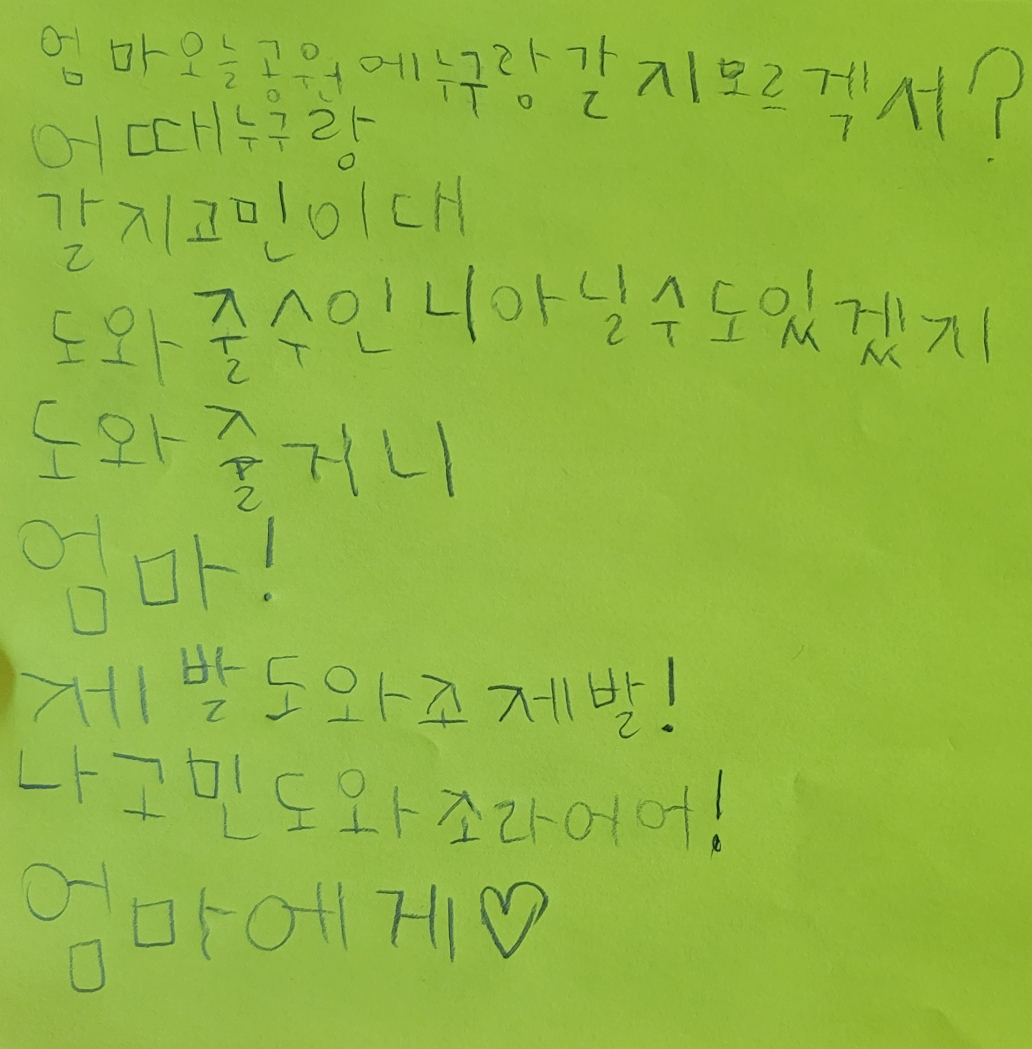 엄마오늘공원에누구랑갈지모르겍서?
어때누구랑
갈지고민이대
도와줄수인니아닐수도있겠지
도와줄거니
엄마!
제발도와조제발!
나고민도와조라어어!
엄마에게♡